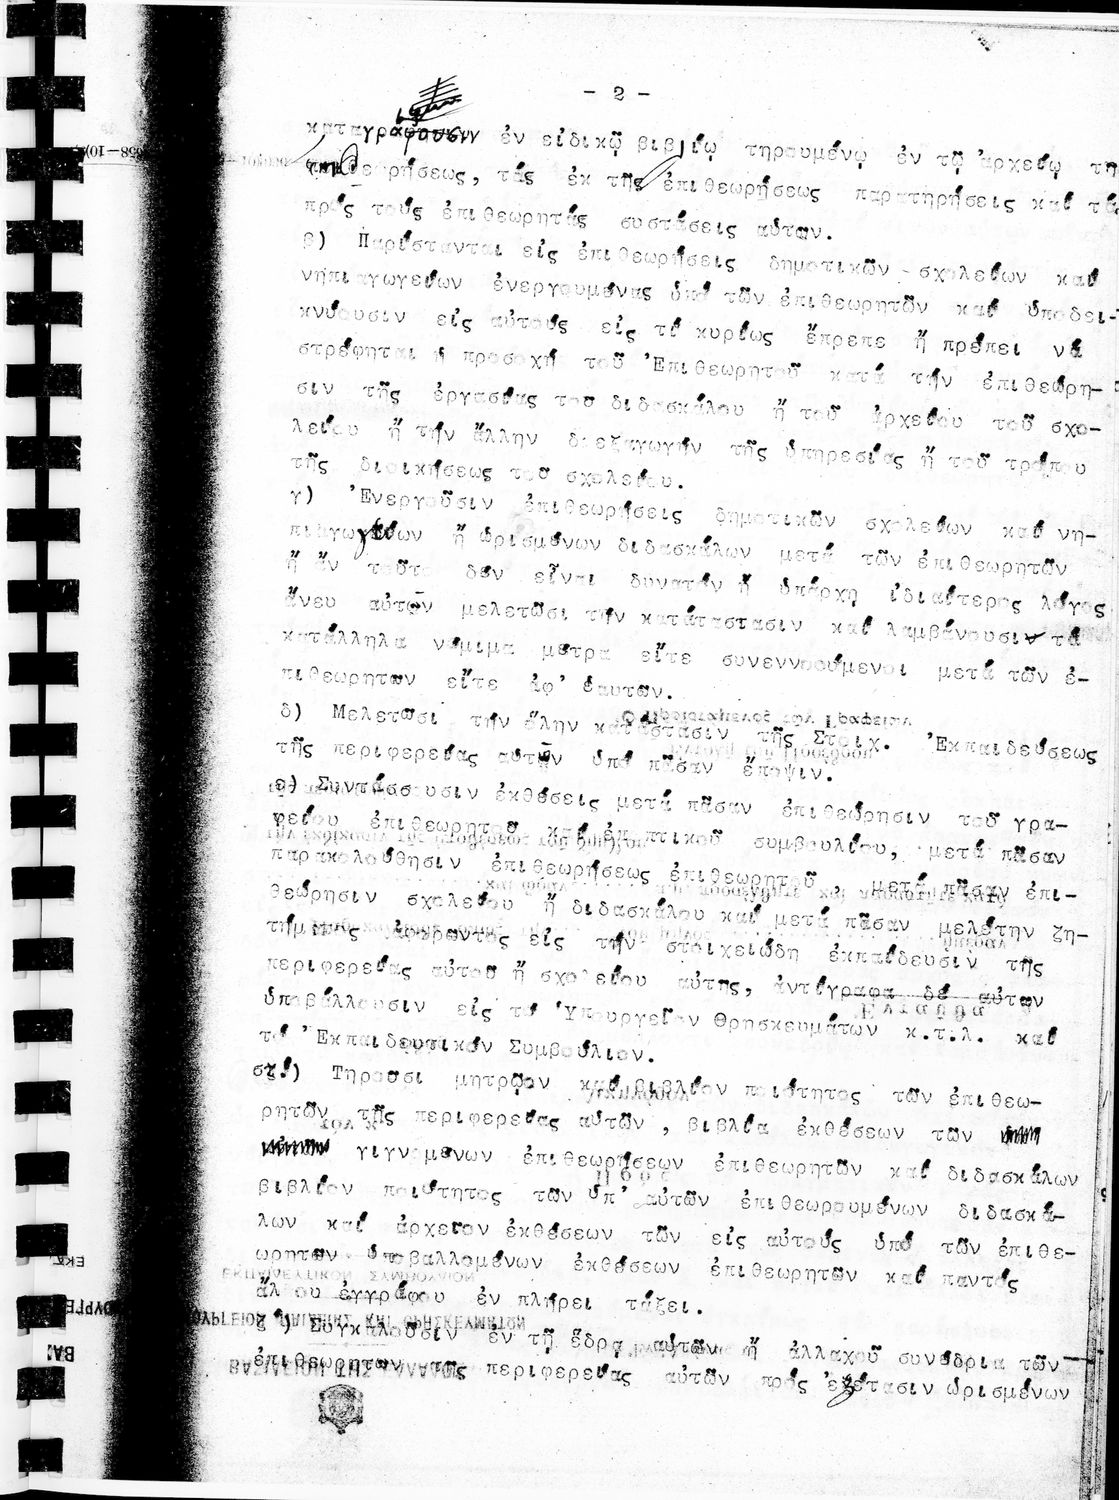 - 2 -
καταγράφουσιν ἐν εἰδικῷ βιβλίῳ τηρουμένῳ ἐν τῷ ἀρχείῳ τῆς
ἐπιθεωρήσεως, τάς ἐκ τῆς ἐπιθεωρήσεως παρατηρήσεις καί τάς
πρός τούς ἐπιθεωρητάς συστάσεις αὐτῶν.
β) Παρίστανται εἰς ἐπιθεωρήσεις δημοτικῶν σχολείων καί
νηπιαγωγείων ἐνεργουμένας ὑπό τῶν ἐπιθεωρητῶν καί ὑποδει-
κνύουσιν εἰς αὐτούς εἰς τί κυρίως ἔπρεπε ἤ πρέπει νά
στρέφηται ἡ προσοχή τοῦ Ἐπιθεωρητοῦ κατά τήν ἐπιθεώρη-
σιν τῆς ἐργασίας τοῦ διδασκάλου ἤ τοῦ ἀρχείου τοῦ σχο-
λείου ἤ τήν ἄλλην διεξαγωγήν τῆς ὑπηρεσίας ἤ τοῦ τρόπου
τῆς διοικήσεως τοῦ σχολείου.
γ) Ἐνεργοῦσιν ἐπιθεωρήσεις δημοτικῶν σχολείων καί νη-
πιαγωγείων ἤ ὡρισμένων διδασκάλων μετά τῶν ἐπιθεωρητῶν
ἤ ἄν τοῦτο δέν εἶναι δυνατόν ἤ ὑπάρχῃ ἰδιαίτερος λόγος
ἄνευ αὐτῶν μελετῶσι τήν κατάστασιν καί λαμβάνουσιν τά
κατάλληλα νόμιμα μέτρα εἴτε συνεννοούμενοι μετά τῶν ἐ-
πιθεωρητῶν εἴτε ἀφ' ἑαυτῶν.
δ) Μελετῶσι τήν ὅλην κατάστασιν τῆς Στοιχ. Ἐκπαιδεύσεως
τῆς περιφερείας αὐτῶν ὑπό πᾶσαν ἔποψιν.
ε) Συντάσσουσιν ἐκθέσεις μετά πᾶσαν ἐπιθεώρησιν τοῦ γρα-
φείου ἐπιθεωρητοῦ καί ἐποπτικοῦ συμβουλίου, μετά πᾶσαν
παρακολούθησιν ἐπιθεωρήσεως ἐπιθεωρητοῦ, μετά πᾶσαν ἐπι-
θεώρησιν σχολείου ἤ διδασκάλου καί μετά πᾶσαν μελέτην ζη-
τήματος ἀφορῶντος εἰς τήν στοιχειώδη ἐκπαίδευσιν τῆς
περιφερείας αὐτοῦ ἤ σχολείου αὐτῆς, ἀντίγραφα δέ αὐτῶν
ὑποβάλλουσιν εἰς τό Ὑπουργεῖον Θρησκευμάτων κ.τ.λ. καί
τό Ἐκπαιδευτικόν Συμβούλιον.
στ.) Τηροῦσι μητρῷον καί βιβλίον ποιότητος τῶν ἐπιθεω-
ρητῶν τῆς περιφερείας αὐτῶν, βιβλία ἐκθέσεων τῶν
γιγνομένων ἐπιθεωρήσεων ἐπιθεωρητῶν καί διδασκάλων
βιβλίον ποιότητος τῶν ὑπ' αὐτῶν ἐπιθεωρουμένων διδασκά-
λων καί ἀρχεῖον ἐκθέσεων τῶν εἰς αὐτούς ὑπό τῶν ἐπιθε-
ωρητῶν ὑποβαλλομένων ἐκθέσεων ἐπιθεωρητῶν καί παντός
ἄλλου ἐγγράφου ἐν πλήρει τάξει.
ζ) Συγκαλοῦσιν ἐν τῇ ἕδρᾳ αὐτῶν ἤ ἀλλαχοῦ συνέδρια τῶν
ἐπιθεωρητῶν τῆς περιφερείας αὐτῶν πρός ἐξέτασιν ὡρισμένων